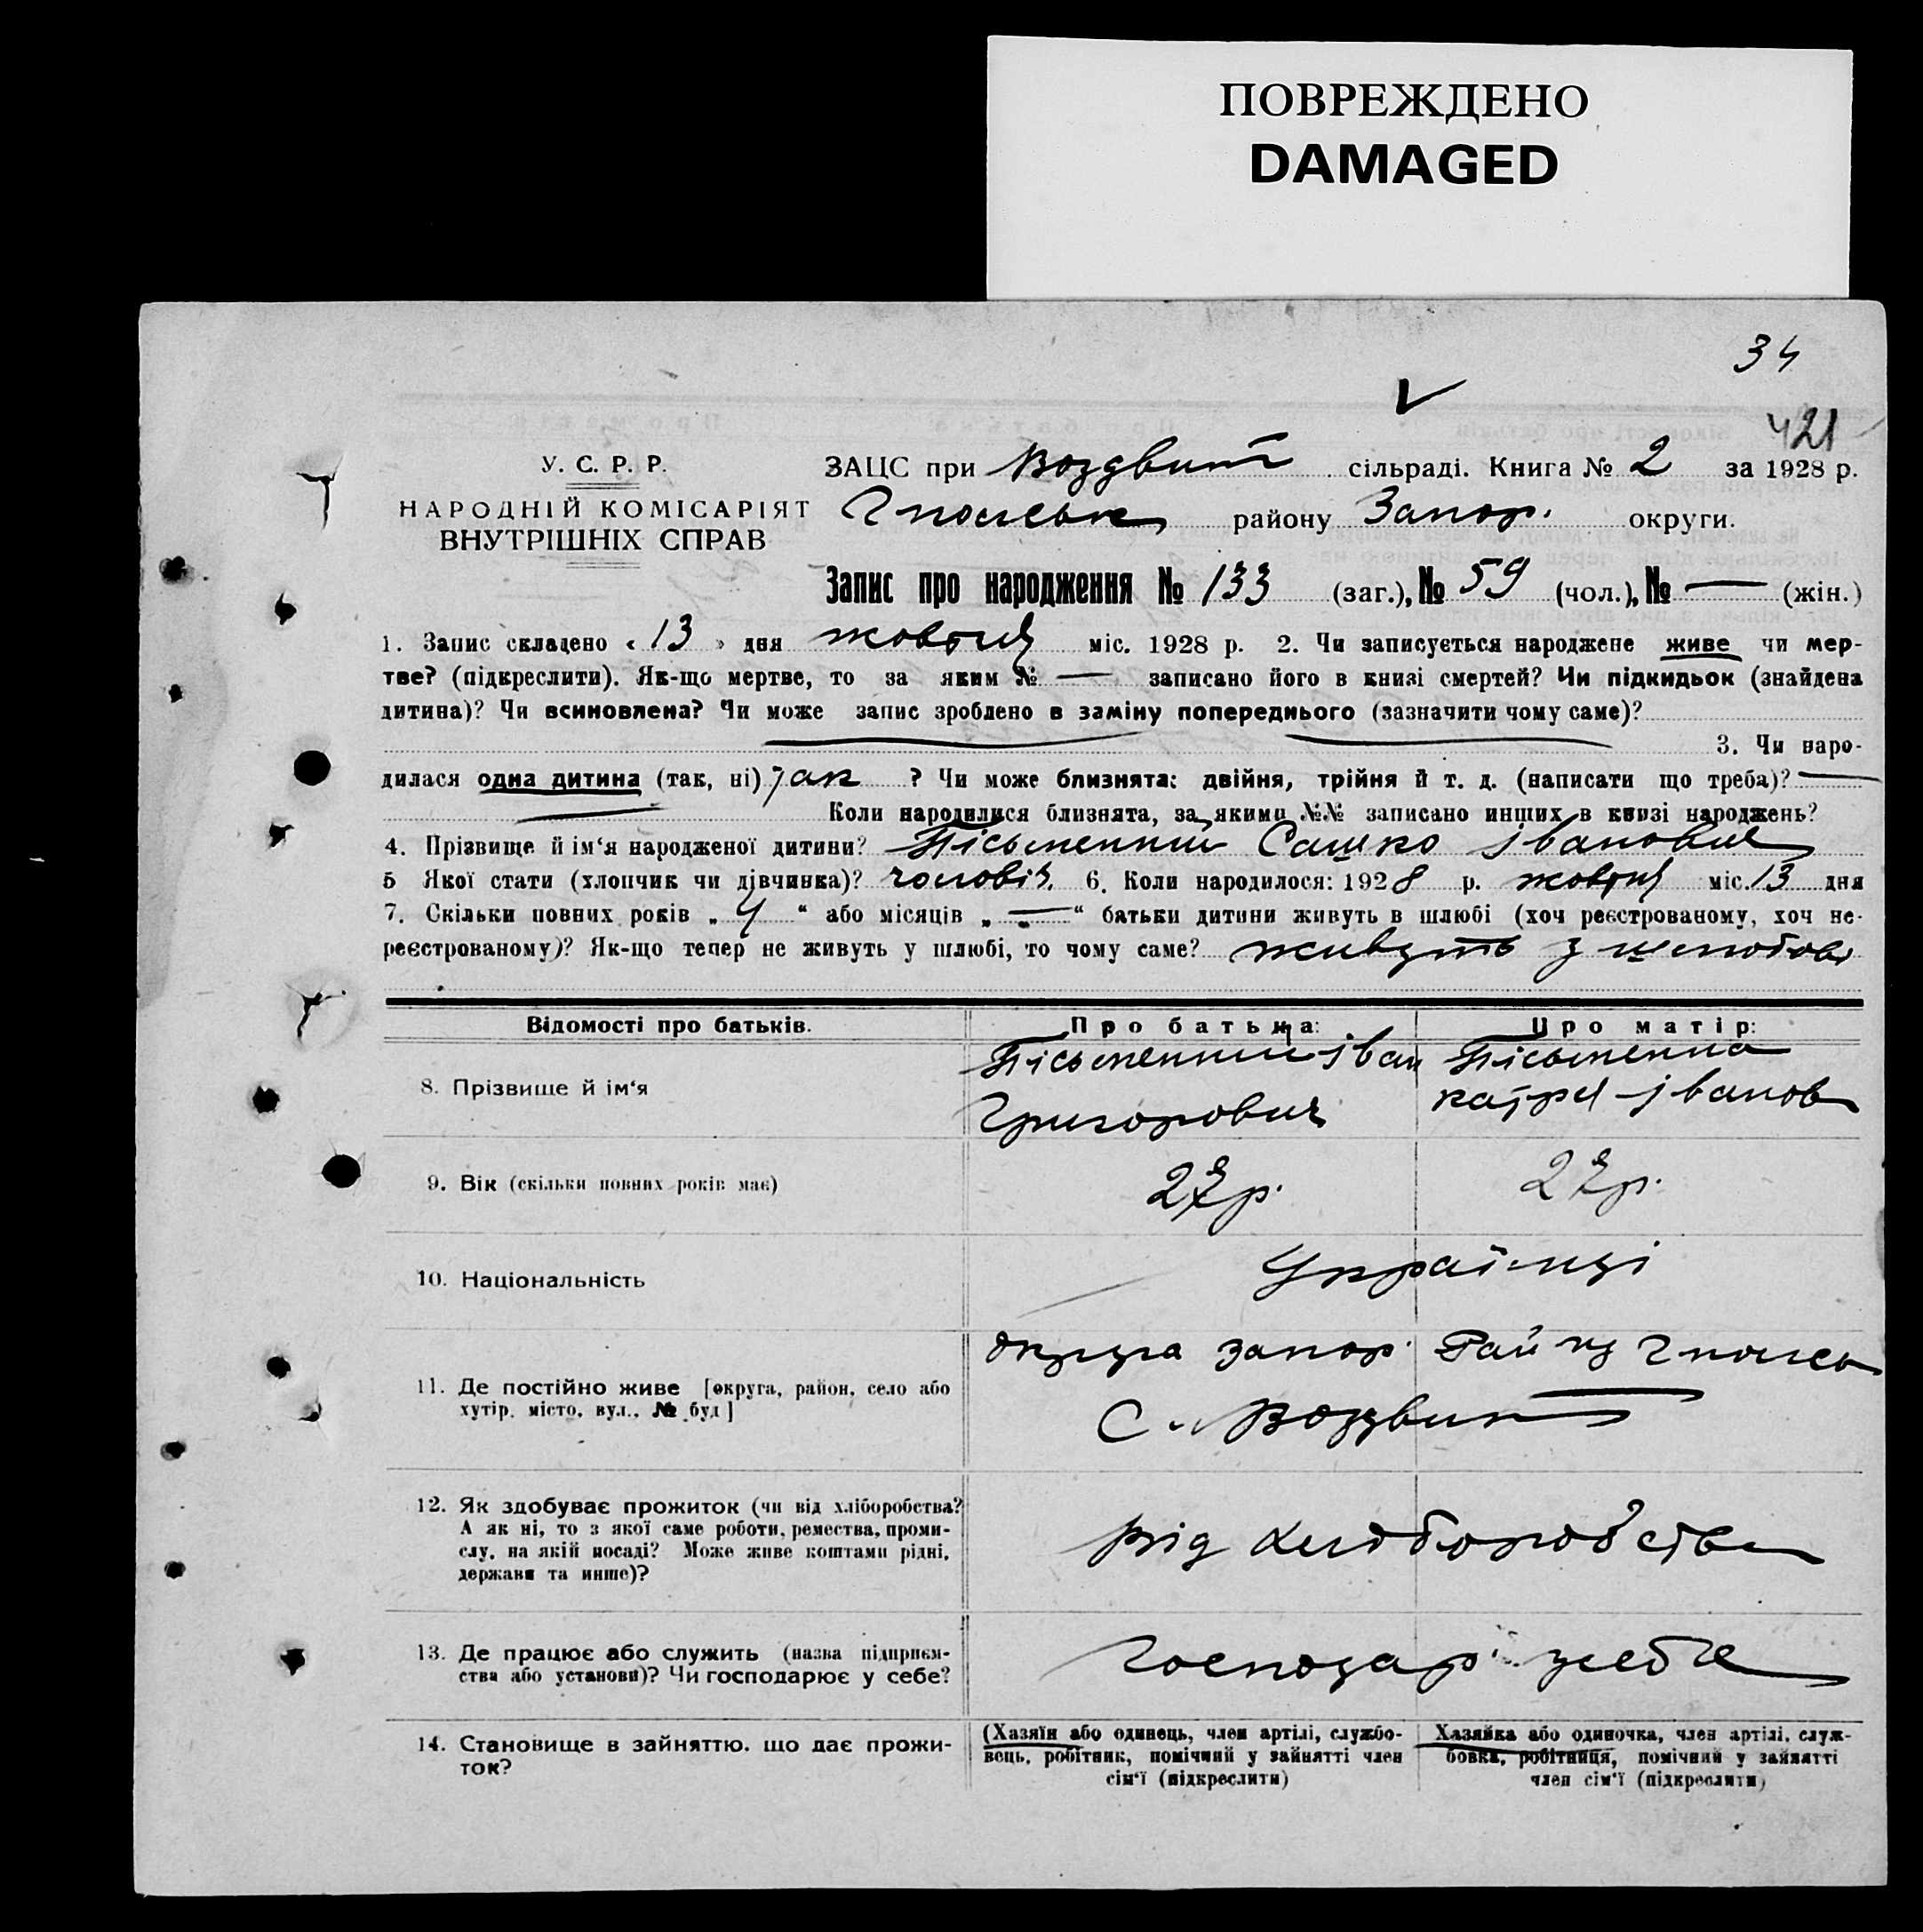 ПОВРЕЖДЕНО
DAMAGED
34
421
У. С. Р. Р.
НАРОДНІЙ КОМІСАРІЯТ
ВНУТРІШНІХ СПРАВ
ЗАЦС при Воздвит сільраді. Книга № 2 за 1928 р.
району Запор. округи.
Запис про народження № 133 (заг.), № 59 (чол.), № — (жін.)
1. Запис складено « 13 » дня жовтня міс. 1928 р. 2. Чи записується народжене живе чи мер-
тве? (підкреслити). Як-що мертве, то за яким № — записано його в книзі смертей? Чи підкидьок (знайдена
дитина)? Чи всиновлена? Чи може запис зроблено в заміну попереднього (зазначити чому саме)?
3. Чи наро-
дилася одна дитина (так, ні) так ? Чи може близнята: двійня, трійня й т. д. (написати що треба)? —
Коли народилися близнята, за якими №№ записано инших в книзі народжень?
4. Прізвище й ім‘я народженої дитини? Пісьменний Сашко Іванович
5 Якої стати (хлопчик чи дівчинка)? чоловіч. 6. Коли народилося: 1928 р. жовтня міс. 13 дня
7. Скільки повних років „ 4 “ або місяців „ — “ батьки дитини живуть в шлюбі (хоч реєстрованому, хоч не-
реєстрованому)? Як-що тепер не живуть у шлюбі, то чому саме? живуть у шлюбові
Відомості про батьків.
Про батька:
Про матір:
8. Прізвище й ім‘я
Пісьменний Іван
Григорович
Пісьменна
Катря Іванов
9. Вік (скільки повних років має)
10. Національність
Українці
11. Де постійно живе [округа, район, село або
хутір, місто, вул., № буд]
округа Запор. Район
С. Воздвит
12. Як здобуває прожиток (чи від хліборобства?
А як ні, то з якої саме роботи, ремества, проми-
слу, на якій посаді? Може живе коштами рідні,
держави та инше)?
від хліборобства
13. Де працює або служить (назва підприєм-
ства або установи)? Чи господарює у себе?
Господар. у себе
14. Становище в зайняттю, що дає прожи-
ток?
(Хазяїн або одинець, член артілі, службо-
вець, робітник, помічний у зайнятті член
сім‘ї (підкреслити)
Хазяйка або одиночка, член артілі, служ-
бовка, робітниця, помічний у зайнятті
член сім‘ї (підкреслити)